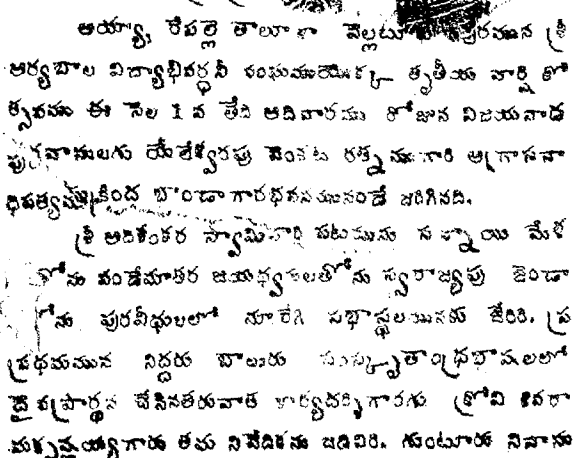 ఆయ్యా, రేపల్లె తాలూకా వెల్లటూరు పురమున శ్రీ
ఆర్యబాల విద్యాభివర్ధనీ సంఘముయొక్క తృతీయ వార్షి కో
త్సవము ఈ నెల 1 వ తేది ఆదివారము రోజున విజయవాడ
పురవాసులగు యేలేశ్వరపు వెంకట రత్నముగారి ఆగ్రాసనా
ధిపత్యముక్రింద భాండాగారభవనమునందే జరిగినది.
శ్రీ ఆదిశంకర స్వామివారి పటమును సన్నాయి మేళ
తోను వందేమాతర జయధ్వనులతోను స్వరాజ్యపు జెండా
తోను పురవీధులలో నూరేగి సభాస్థలమునకు జేరిరి. ప్ర
ప్రథమమున నిద్దరు బాలురు సంస్కృతాంధ్రభాషలలో
దైవప్రార్థన చేసినతరువాత కార్యదర్శిగారగు క్రోవి శివరా
మకృష్ణయ్యగారు తమ నివేదికను జదివిరి. గుంటూరు నివాసు